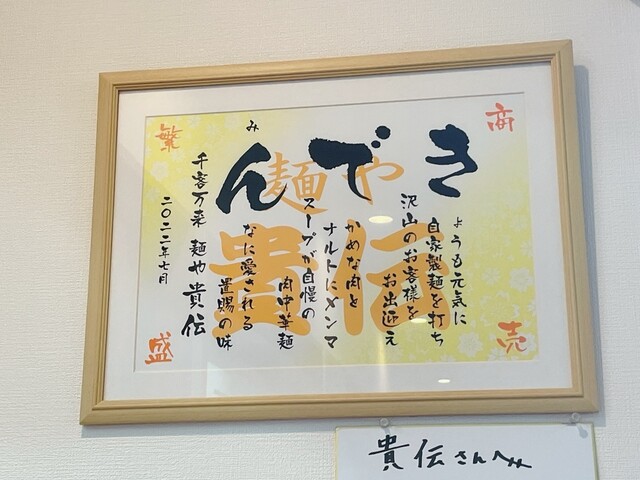 商
売
繁
盛
麺や
貴伝
きょうも元気に
自家製麺を打ち
沢山のお客様を
お出迎え
でかめな肉と
ナルトにメンマ
スープが自慢の
肉中華麺
みんなに愛される
置賜の味
千客万来 麺や貴伝
二〇二二年七月
貴伝さんへ